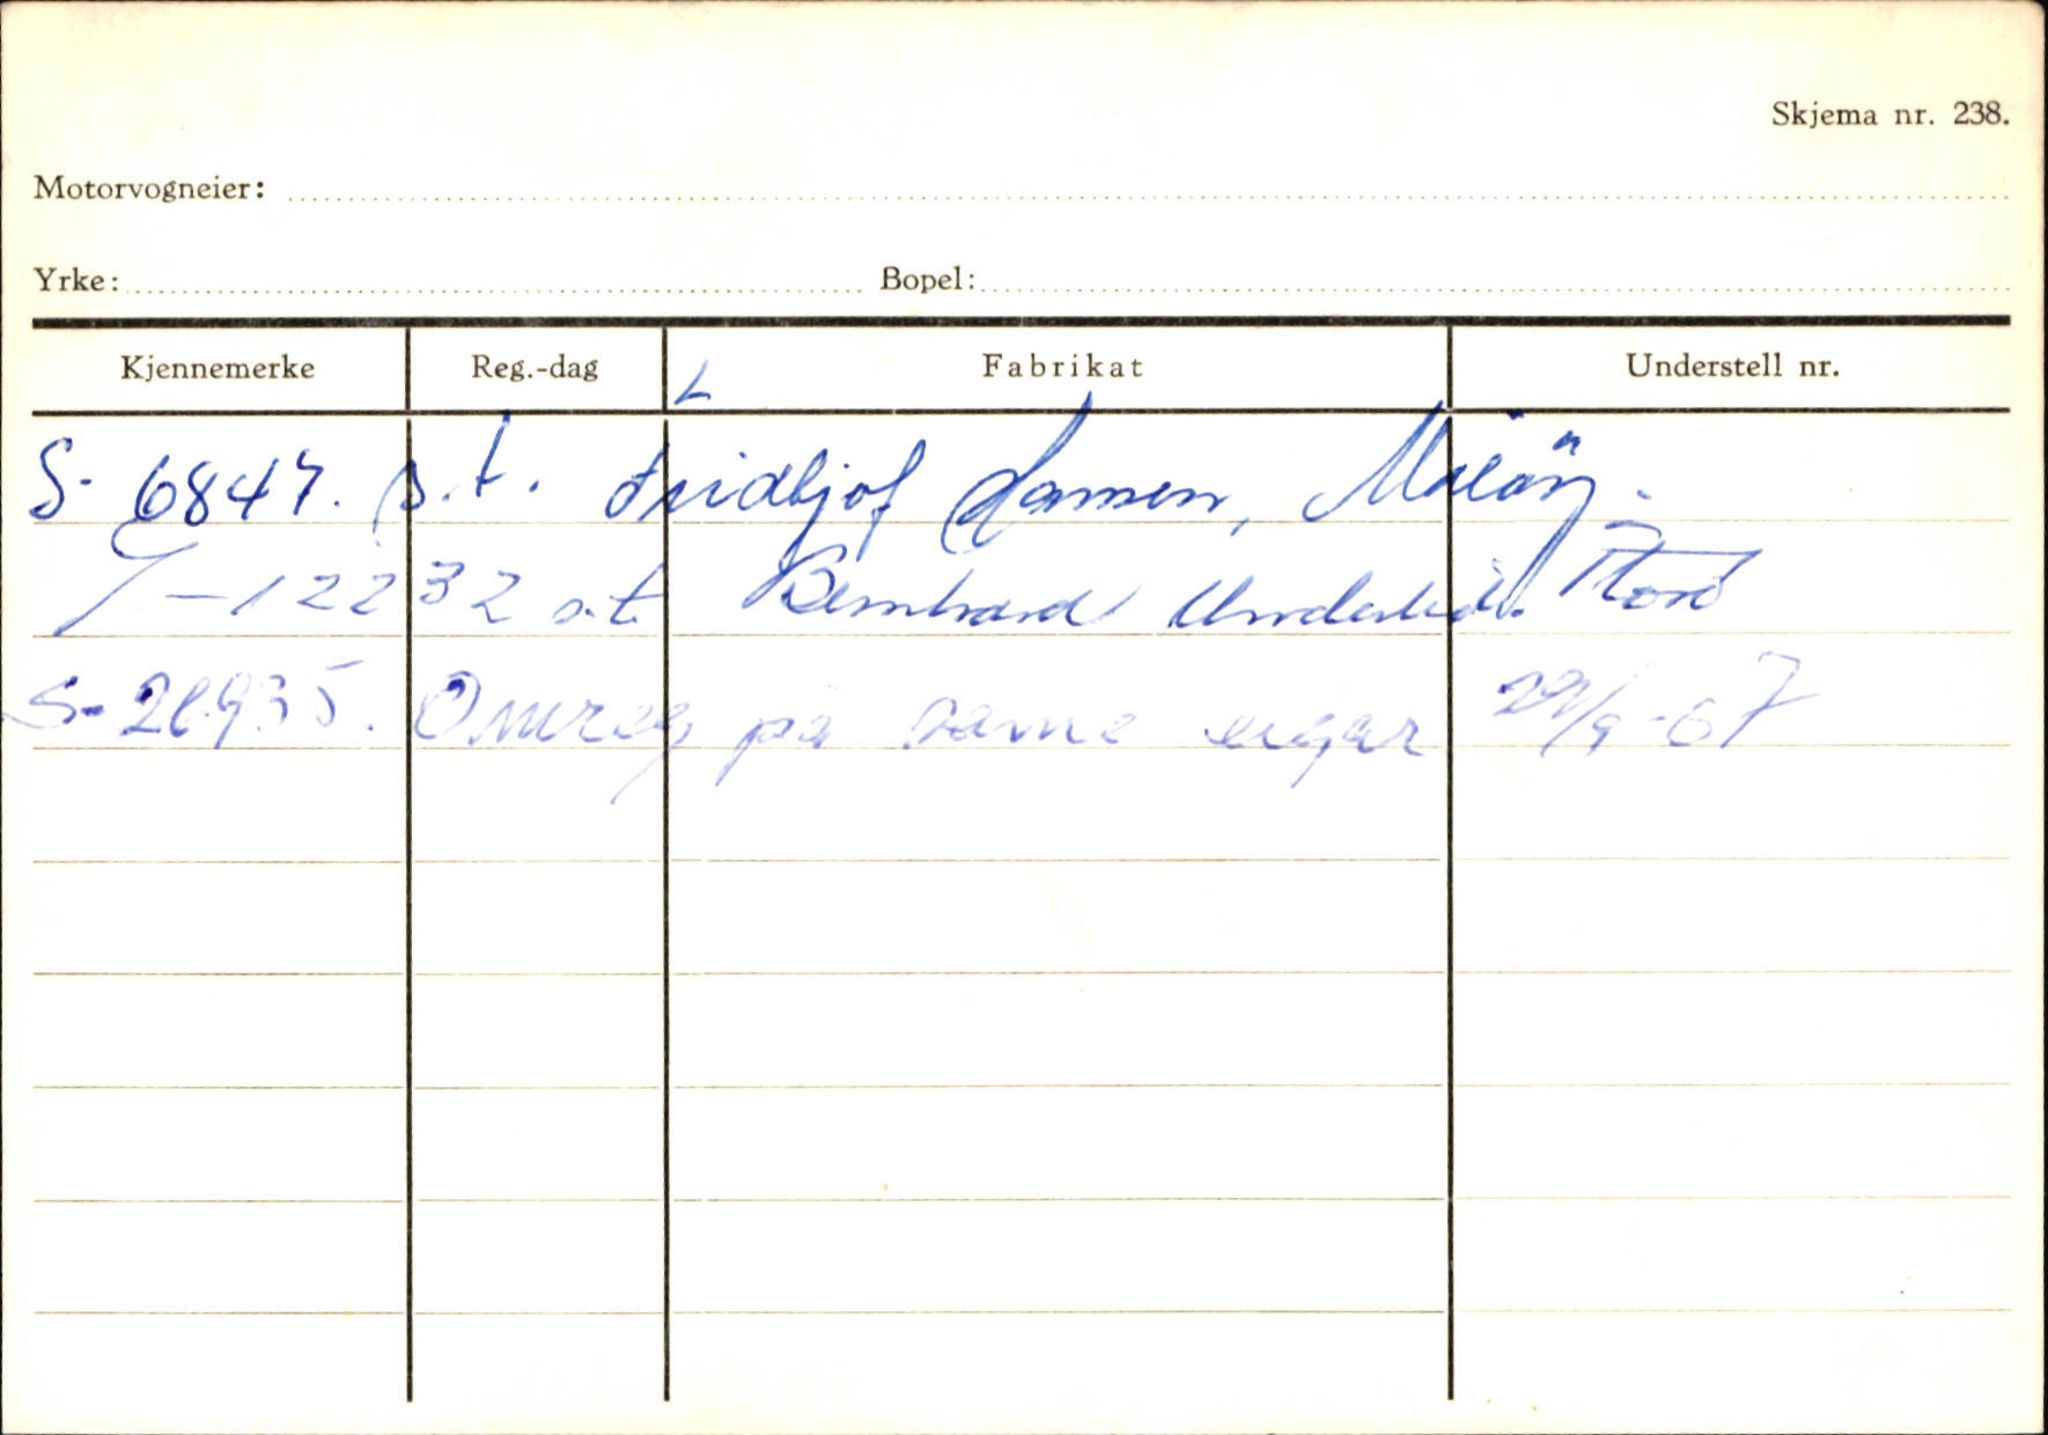 Skjema nr. 238.
Motorvogneier:
Yrke: Bopel:
Kjennemerke Reg.-dag Fabrikat Understell nr.
S- 6847. s.t. Fridtjof Hansen, Måløy.
-12232 s.t. Bernhard
S- 26935. Omreg på same eigar /9-67